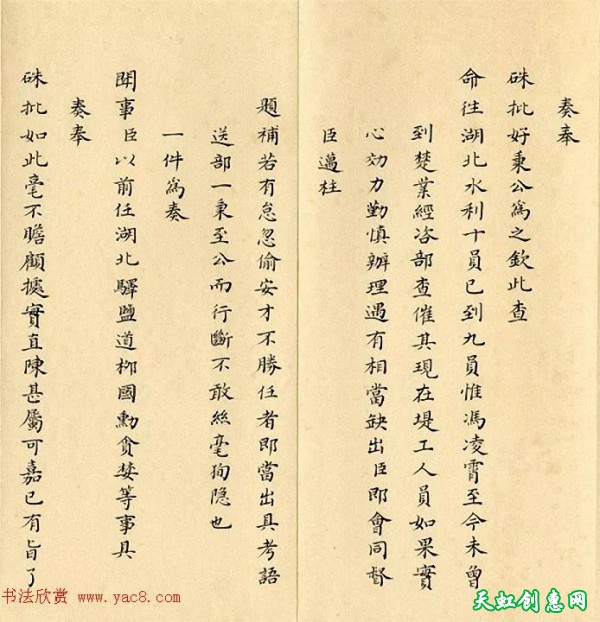 奏奉
硃批好秉公為之欽此查
命往湖北水利十員已到九員惟馮凌霄至今未曾
到楚業經咨部查催其現在堤工人員如果實
心効力勤慎辦理遇有相當缺出臣即會同督
臣邁柱
題補若有怠忽偷安才不勝任者即當出具考語
送部一秉至公而行斷不敢絲毫狥隐也
一件為奏
聞事臣以前任湖北驛鹽道柳國勳貪婪等事具
奏奉
硃批如此毫不瞻顧據實直陳甚屬可嘉已有旨了
书法欣赏 www.yac8.com
天虹创意网